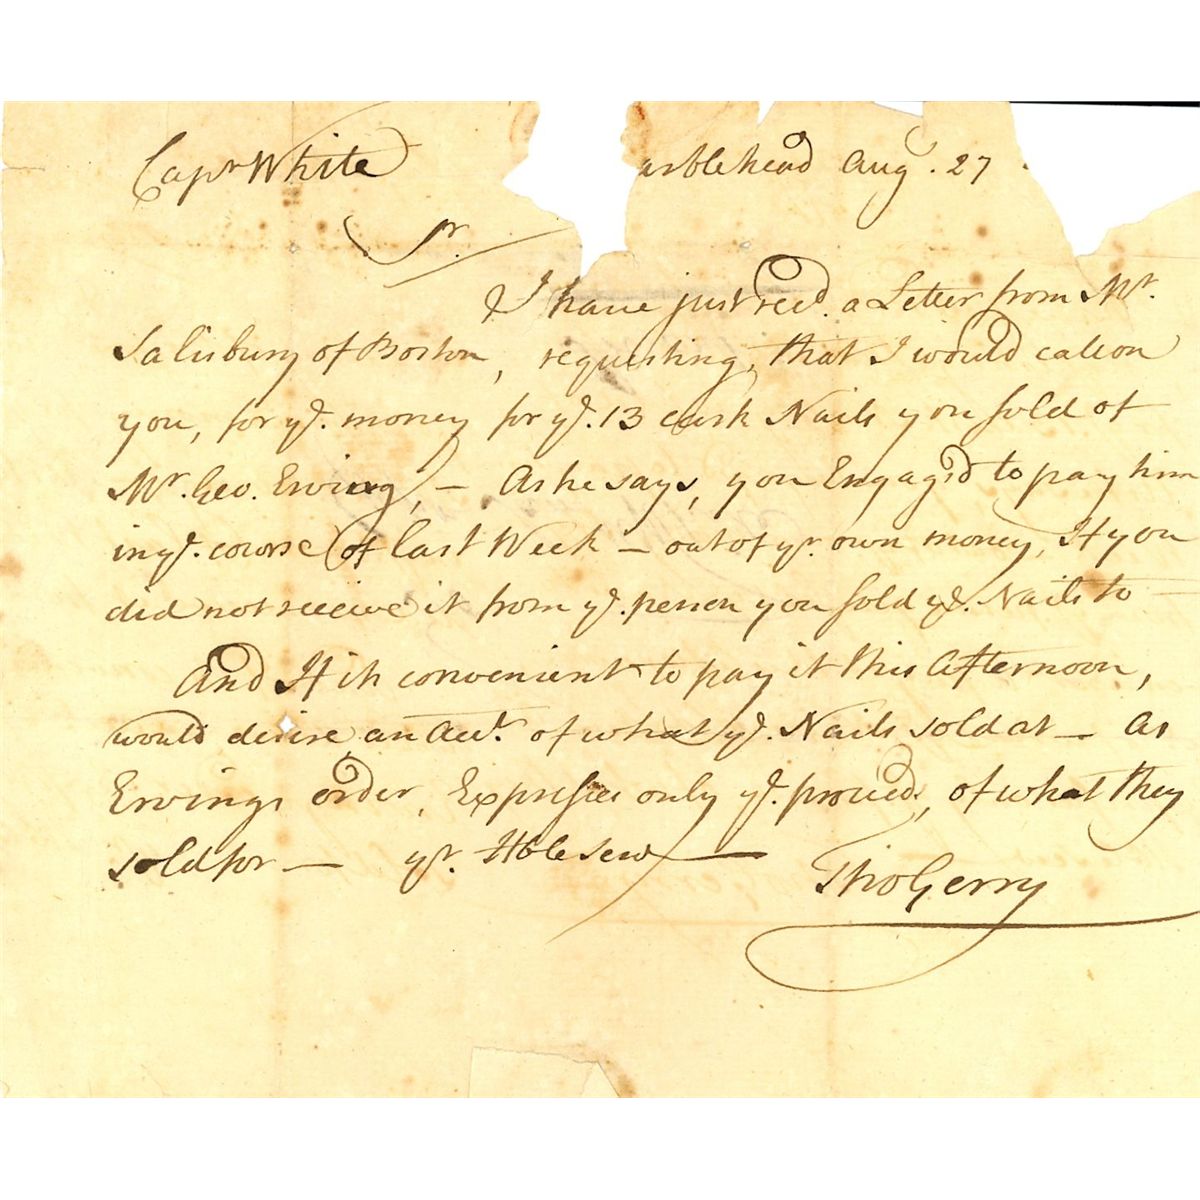 Capn White arblehead Aug. 27
Sr.
I have just recd. a Letter from Mr.
Salisbury of Boston, requesting, that I would call on
you, for ye. money for ye. 13 cask Nails you sold of
Mr. Geo. Erving, – As he says, you Engag'd to pay him
in ye. course of last Week – out of yr. own money, If you
did not receive it from ye. person you sold ye. Nails to
And If it convenient to pay it this Afternoon,
would desire, an Acct. of what ye. Nails sold at – As
Ervings order, Expresses only ye. proceeds, of what they
sold for – yr. Hble serv
Tho Gerry